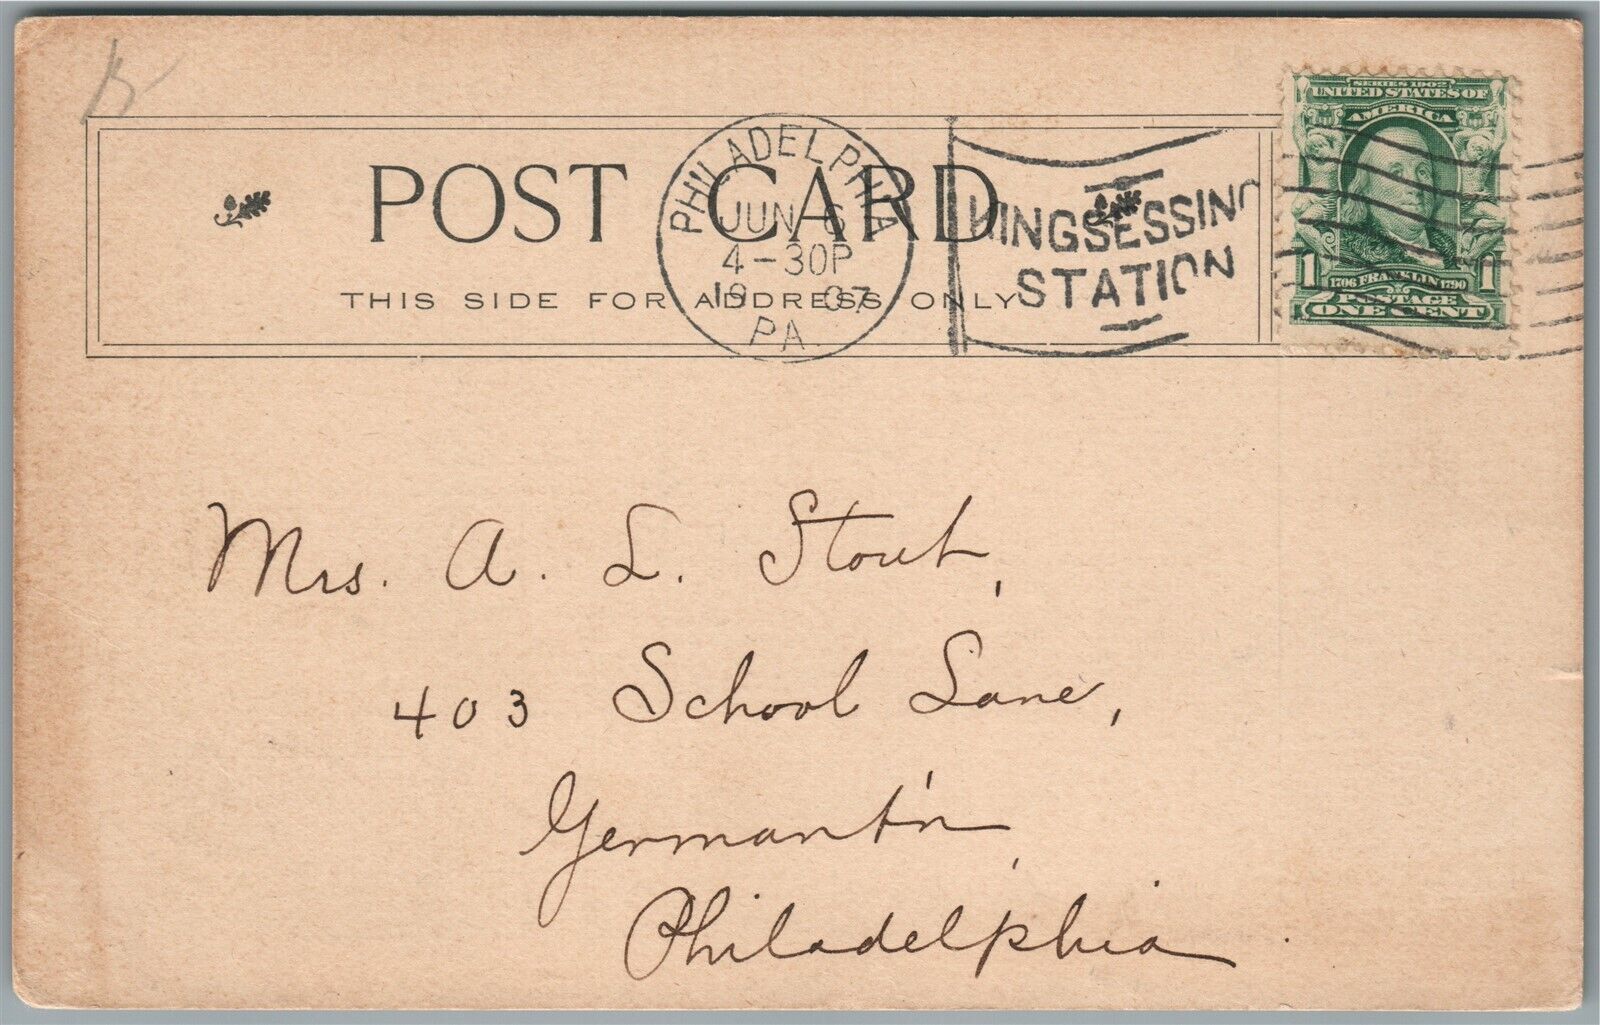 POST CARD
THIS SIDE FOR ADDRESS ONLY
PHILADELPHIA
JUN 6
4-30P
1907
PA.
KINGSESSING
STATION
SERIES 1902
UNITED STATES OF
AMERICA
1 1706 FRANKLIN 1790 1
POSTAGE
ONE CENT
Mrs. A. L. Stout,
403 School Lane,
Germant'n,
Philadelphia.